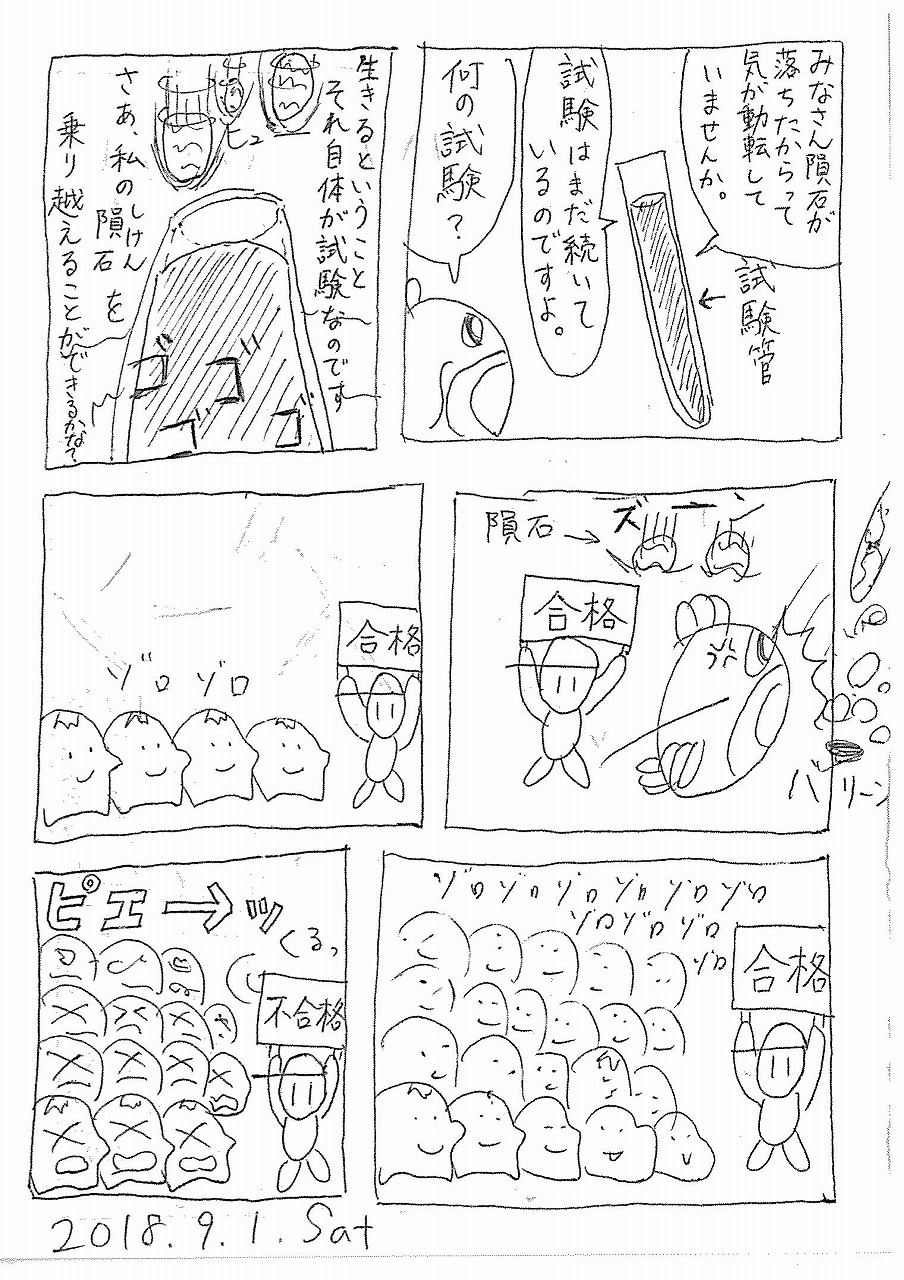 みなさん隕石が
落ちたからって
気が動転して
いませんか。
試験管
試験はまだ続いて
いるのですよ。
何の試験？
生きるということ
それ自体が試験なのです
ヒュー
さあ、私の隕石を
しけん
乗り越えることができるかな？
ゴゴゴゴ
ズーン
隕石→
合格
バリーン
ゾロゾロ
合格
ゾロゾロゾロゾロゾロゾロ
ゾロゾロゾロ
ゾロ
合格
ピエーッ
くるっ
不合格
2018.9.1.Sat